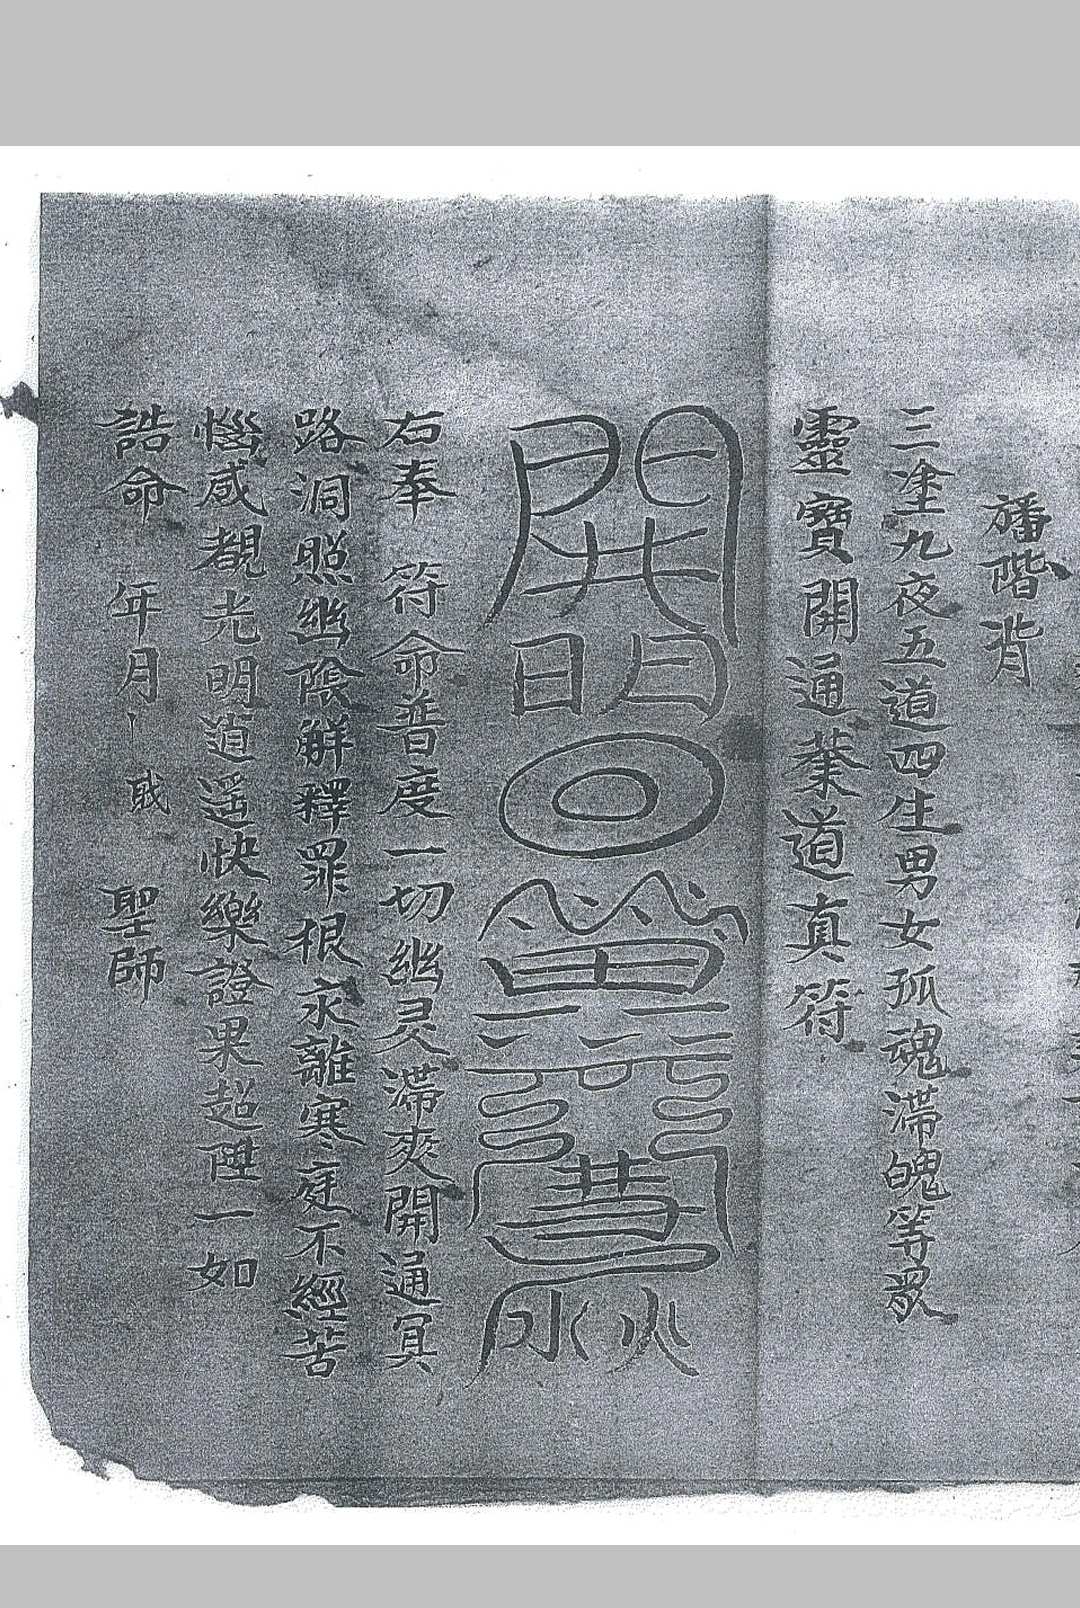 旛階背
三塗九夜五道四生男女孤魂滯魄等衆
靈寶開通業道真符
開明
右奉 符命普度一切幽灵滯爽開通冥
路洞照幽陰解釋罪根永離寒庭不經苦
惱咸覩光明逍遥快樂證果超陞一如
誥命 年月 聖師